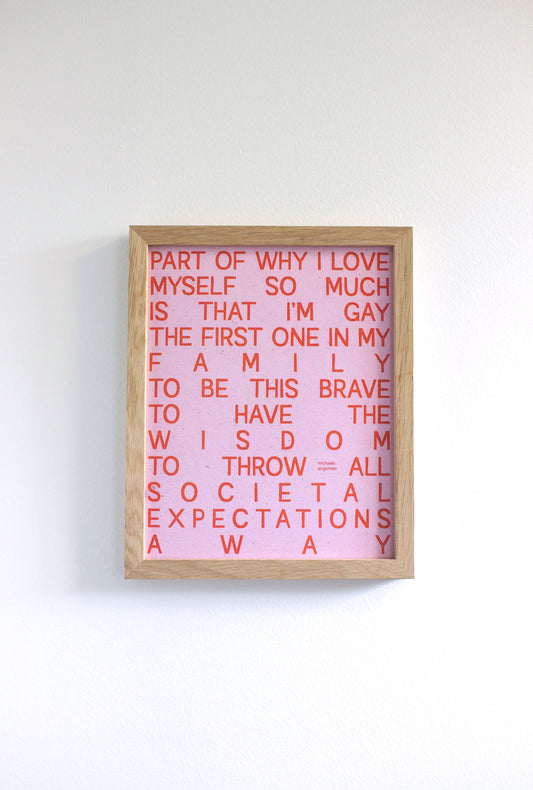 PART OF WHY I LOVE
MYSELF SO MUCH
IS THAT I'M GAY
THE FIRST ONE IN MY
FAMILY
TO BE THIS BRAVE
TO HAVE THE
WISDOM
TO THROW ALL
michaela
angemeer
SOCIETAL
EXPECTATIONS
AWAY